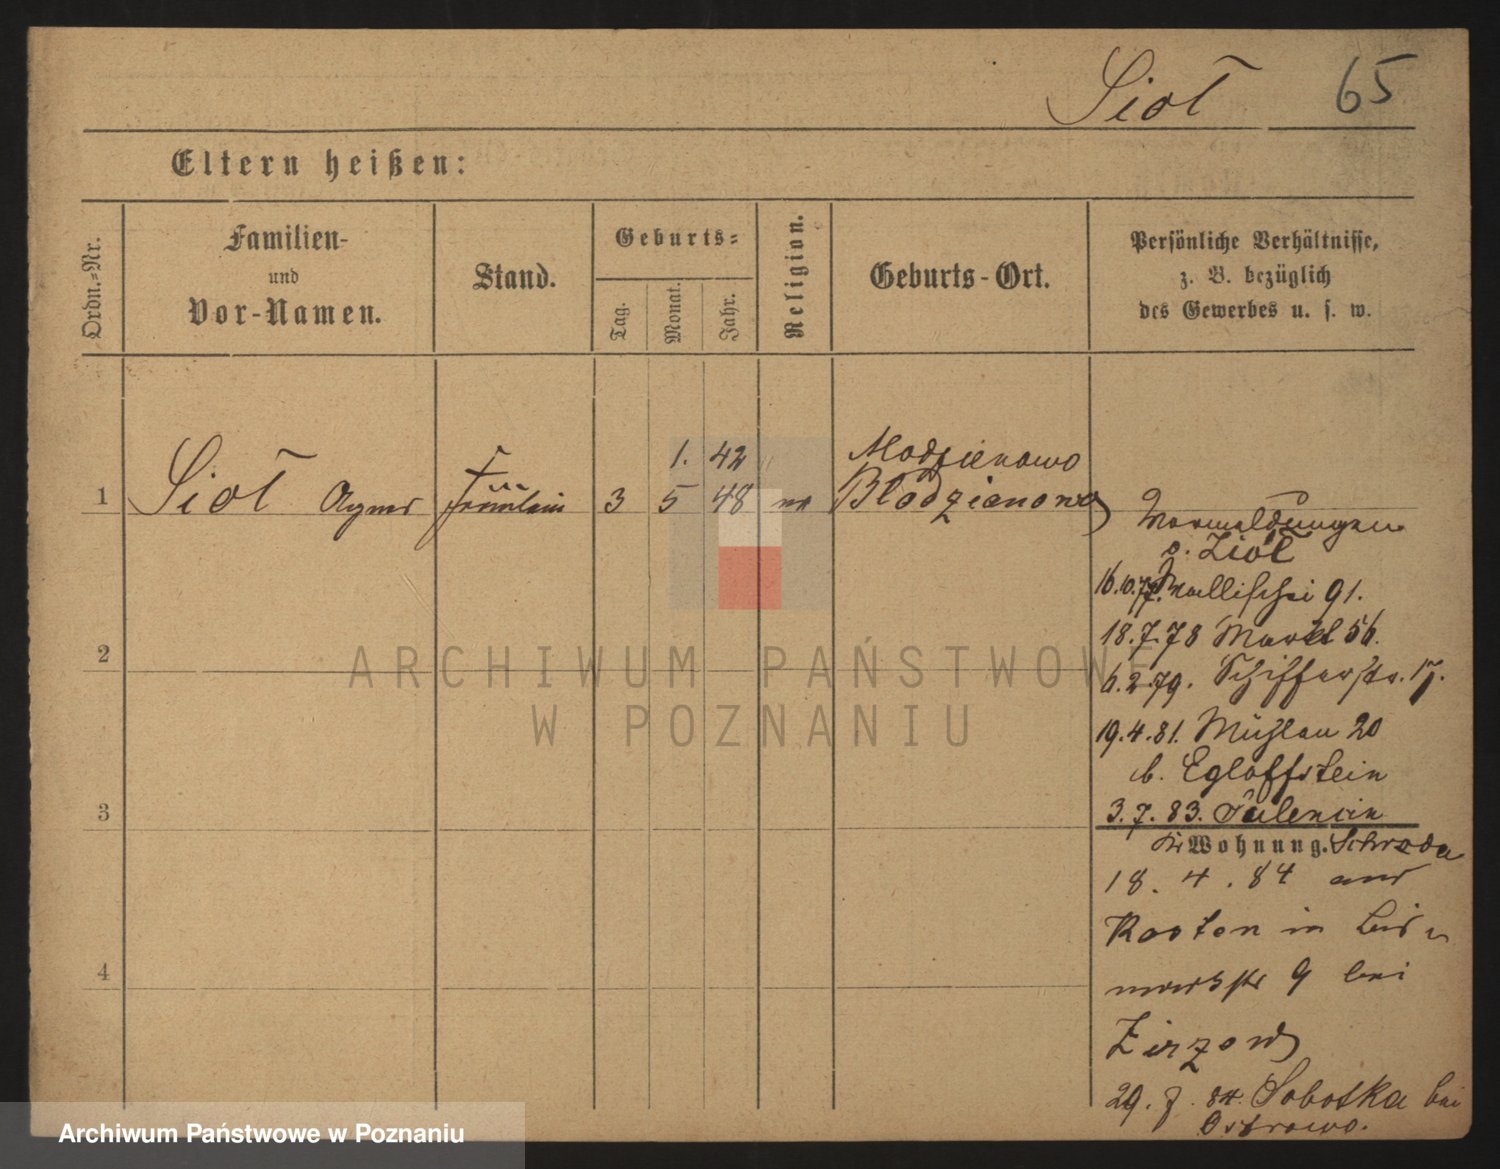 Siol 65
Eltern heißen:
Ordn.-Nr.
Familien-
und
Vor-Namen.
Stand.
Geburts-
Tag.
Monat.
Jahr.
Religion.
Geburts-Ort.
Persönliche Verhältnisse,
z. B. bezüglich
des Gewerbes u. s. w.
1. 42 Modzienowo
1 Siol Agnes Fräulein 3 5 48 Blodzianowo
v. Ziol
16.10.77. Wallischei 91.
18.7.78 Markt 56.
6.2.79. Schifferstr. 17.
19.4.81. Mühlen 20
b. Egloffstein
3.7.83.
Wohnung. Schroda
18.4.84 aus
Kosten in Bis-
marckstr 9 bei
29.7.84. Sobotka bei
Ostrowo.
2
3
4
ARCHIWUM PAŃSTWOWE
W POZNANIU
Archiwum Państwowe w Poznaniu